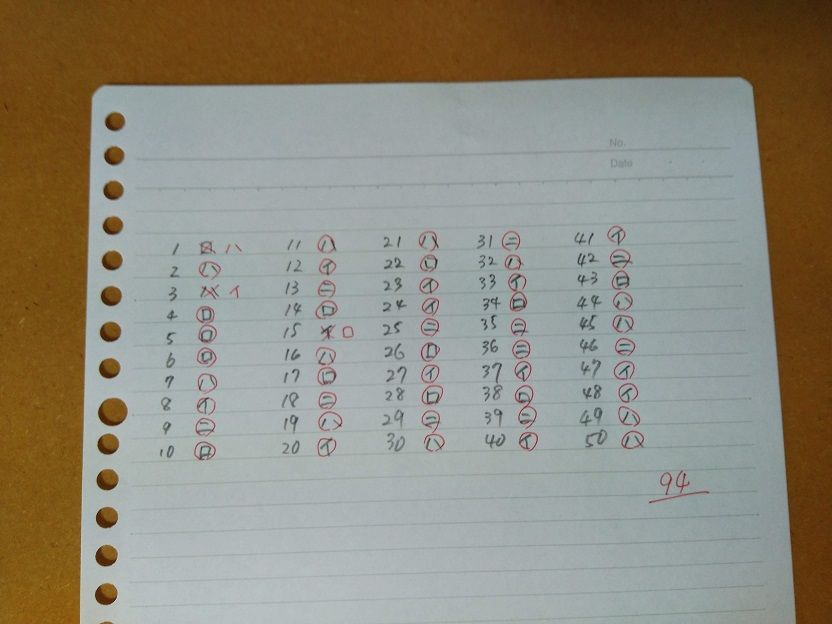 No.
Date
1 ロ ハ 11 ハ 21 ハ 31 ニ 41 イ
2 ハ 12 イ 22 ロ 32 ハ 42 ニ
3 ハ イ 13 ニ 23 イ 33 イ 43 ロ
4 ロ 14 ロ 24 イ 34 ロ 44 ハ
5 ロ 15 イ ロ 25 ニ 35 ニ 45 ハ
6 ロ 16 ハ 26 ロ 36 ニ 46 ニ
7 ハ 17 ロ 27 イ 37 イ 47 イ
8 イ 18 ニ 28 ロ 38 ロ 48 イ
9 ニ 19 ハ 29 ニ 39 ニ 49 ハ
10 ロ 20 イ 30 ハ 40 イ 50 ハ
94